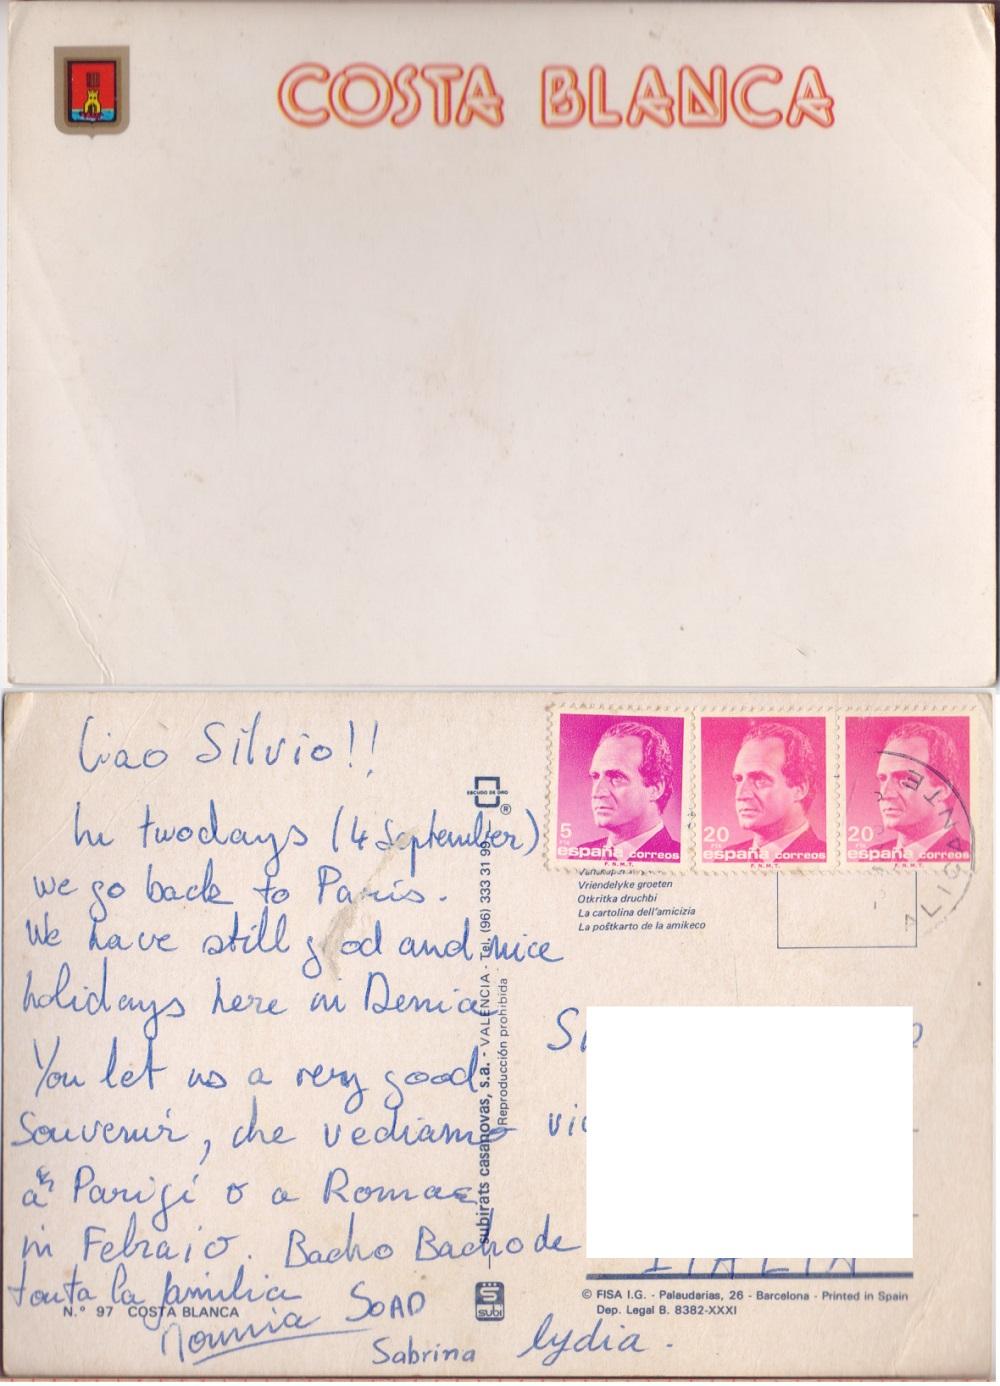 COSTA BLANCA
Ciao Silvio!!
In twodays (4 September)
we go back to Paris.
We have still good and nice
holidays here in Denia
You let us a very good
Souvenir, che vediamo
a Parigi o a Roma
in Febraio. Bacho Bacho de
touta la familia
Mounia SOAD
Sabrina lydia.
N.° 97 COSTA BLANCA
ESCUDO DE ORO
®
subirats casanovas, s.a. - VALENCIA - Tel. (96) 333 31 99
Reproducción prohibida
SUBI
5
PTA
españa correos
F.N.M.T.
20
PTA
españa correos
F.N.M.T.
20
PTA
españa correos
F.N.M.T.
ALICANTE
Vriendelyke groeten
Otkritka druchbi
La cartolina dell'amicizia
La poŝtkarto de la amikeco
ITALIA
© FISA I.G. - Palaudarias, 26 - Barcelona - Printed in Spain
Dep. Legal B. 8382-XXXI